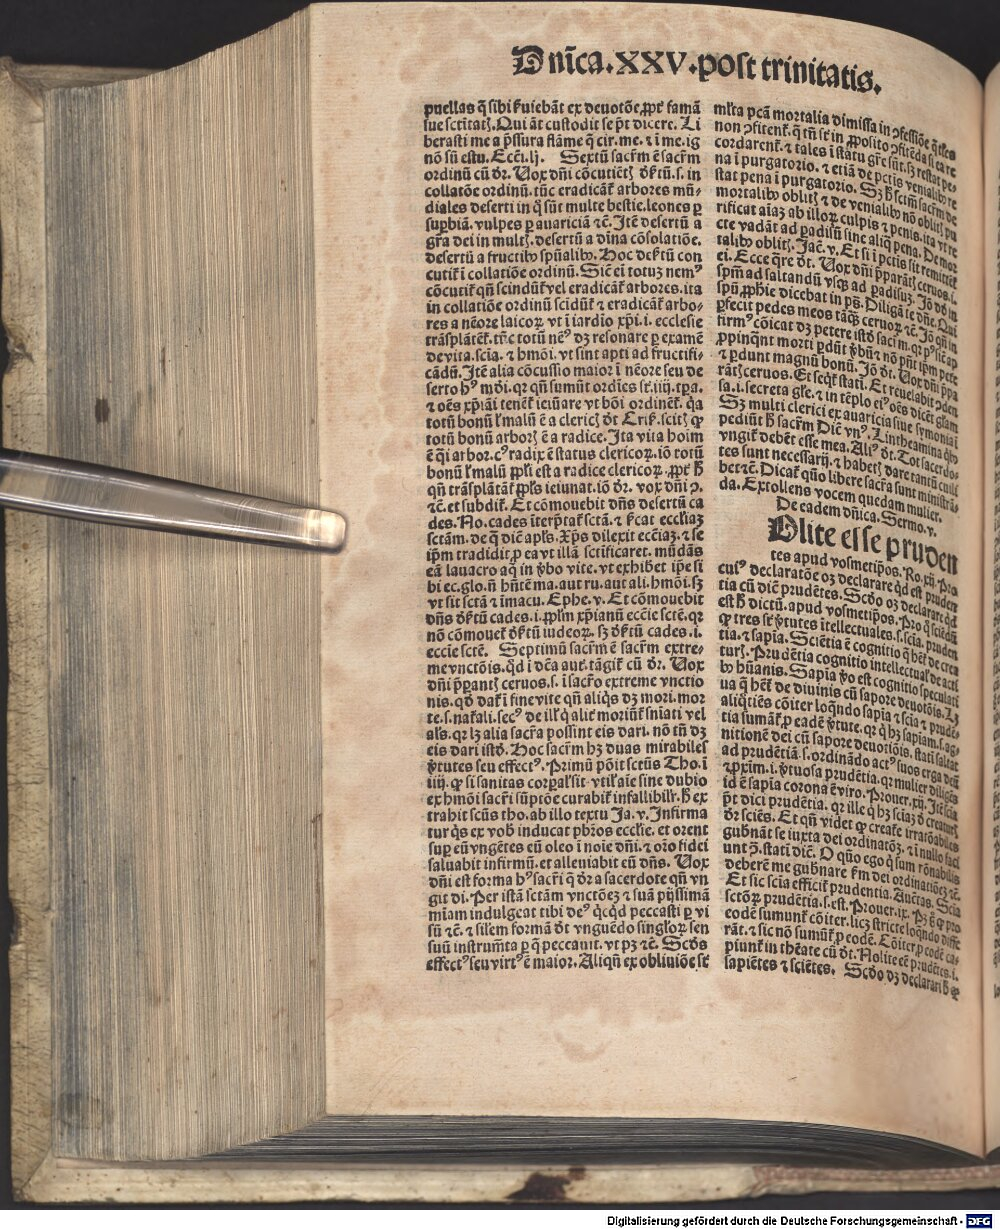 Dnīca.XXV.post trinitatis.
puellas q̄ sibi ẜuiebāt ex deuotōe ꝓpt̓ famā
sue sctītatꝭ. Qui āt custodit se p̄t dicere. Li
berasti me a p̄ssura flāme q̄ cir. me. ⁊ ī me. ig
nō sū estu. Ecci. lj. Sextū sacr̄m ē sacr̄m
ordinū cū d̄r. Uox dn̄i ꝯcutiētꝭ
collatōe ordinū. tūc eradicāt̉ arbores mū-
diales deserti in q̄ sūt multe bestie. leones ꝑ
suꝑbiā. vulpes ꝑ auariciā ⁊c̄. Itē desertū a
gr̄a dei in multꝭ. desertū a dīna cōsolatiōe.
desertū a fructibꝰ spūalibꝰ. Hoc
cutit̉ ī collatiōe ordinū. Sic̄ ei totuꝫ nemꝰ
cōcutit̉ qn̄ scindūt̉ vel eradicāt̉ arbores. ita
in collatiōe ordinū scidūt̉ ⁊ eradicāt̉ arbo-
res a nēore laicoꝝ vt ī iardīo xp̄i. i. ecclesie
trāsplātēt̉. tūc totū neꝰ dꝫ resonare ꝑ examē
de vita. scīa. ⁊ hmōi. vt sint apti ad fructifi-
cādū. Itē alia cōcussio maior ī nēore seu de
serto hꝰ mūdi. qr qn̄ sumūt ordīes sr̄. iiij. tꝑa.
⁊ oēs xp̄iāi tenēt̉ ieiūare vt bōi ordinēt̉. q̄a
totū bonū ł malū ē a clericꝭ
totū bonū arborꝭ ē a radice. Ita vita hoim
ē q̄i arbor. cꝰ radix ē status clericoꝝ. iō totū
bonū ł malū ppl̄i est a radice clericoꝝ. ꝓpt̓ ħ
qn̄ trāsplātāt̉ ppl̄s ieiunat. iō d̄r. vox dn̄i ꝯ.
⁊c̄. et subdit̉. Et cōmouebit dn̄s desertū ca
des. No. cades īterp̄tat̉ sctā. ⁊ eccl̄iaꝫ
sctām. de q̄ dic̄ apl̄s. Xp̄s dilexit ecc̄iaꝫ. ⁊ se
ip̄m tradidit ꝓ ea vt illā sctificaret. mūdās
eā lauacro aq̄ in v̓bo vite. vt exhib̓et ip̄e si
bi ec. glo. nō hn̄tē ma. aut ru. aut ali. hmōi. sꝫ
vt sit sctā ⁊ īmacu. Ephe. v. Et cōmouebit
dn̄s cades. i. ppl̄m xp̄ianū ecc̄ie sctē. qr
nō cōmouet iudeoꝝ. sꝫ cades. i.
ecc̄ie sctē. Septimū sacr̄m ē sacr̄m extre-
me vnctōis. cū d̄r. Uox
dn̄i p̄ꝑantꝭ ceruos. s. ī sacr̄o extreme vnctio
nis. qd̄ dat̉ ī fine vite qn̄ aliq̄s dꝫ mori. mor
te. s. nat̉ali.
als̄. qr lꝫ alia sacr̄a possint eis dari. nō tn̄ dꝫ
eis dari istd̄. Hoc sacr̄m hꝫ duas mirabiles
v̓tutes seu effectꝰ. Primū pōit sctūs Tho. ī
iiij. ꝙ si sanitas corꝑał sit vtił aīe sine dubio
ex hmōi sacr̄i sūptōe curabit̉ infallibilr̄. ħ ex
trahit scūs tho. ab illo textu Ja. v. Infirma
tur q̄s ex vob̓ inducat pbr̄os eccl̄ie. et orent
suꝑ eū vngētes eū oleo ī noīe dn̄i. ⁊ orō fidei
saluabit infirmū. et alleuiabit eū dn̄s. Uox
dn̄i est forma hꝰ sacr̄i q̄ d̄r a sacerdote qn̄ vn
git di. Per istā sctām vnctōeꝫ ⁊ suā pijssimā
mīam indulgeat tibi deꝰ q̄cq̄d peccasti ꝑ vi
sū ⁊c̄. ⁊ silem formā dt̄ vnguēdo singloꝝ sen
suū instrum̄ta ꝑ q̄ peccauit. vt pꝫ ⁊c̄. Scd̄s
effectꝰ seu virtꝰ ē maior. Aliqn̄ ex obliuiōe sr̄
ml̄ta pcā mortalia dimissa in ꝯfessiōe
non ꝯfitent̉. q̄ tn̄ sr̄ in ꝓposito ꝯfitēdi si
cordarent̉. ⁊ tales ī statu gr̄e sūt. sꝫ restat pe-
na ī purgatorio. ⁊ etiā de pctīs venialibꝰ re
stat pena ī purgatorio. Sꝫ ħ sctm̄ sacr̄m de
mortalibꝰ oblitꝭ ⁊ de venialibꝰ nō oblitꝭ pu
rificat aīaꝫ ab illoꝝ culpis ⁊ penis. ita vt re
cte vadāt ad ꝑadisū sine aliq̄ pena. De mor
talibꝰ oblitꝭ. Jac̄. v. Et si ī pctīs sit remittēt̉
ei. Ecce q̄re dt̄. Uox dn̄i p̄ꝑātꝭ ceruos. i.
spm̄ ad saltandū vsqꝫ ad ꝑadisuꝫ. Iō dd̄ in
spū ꝓphīe dicebat in ps̄. Diligā te dn̄e. Qui
ꝑfecit pedes meos tāqꝫ ceruoꝝ ⁊c̄. Iō qn̄ in
firmꝰ cōicat dꝫ petere istd̄ sacr̄m.
ꝓpinqn̄t morti ꝑdūt v̓bū ⁊ nō pn̄t ip̄m pete
⁊ ꝑdunt magnū bonū. Iō dt̄. Uox dn̄i p̄ꝑa
rātꝭ ceruos. Et seqt̉ statī. Et reuelabit ꝯden
sa. i. secreta gl̄e. ⁊ in tēplo eiꝰ oēs dicēt gl̄am
Sꝫ multi clerici ex auaricia siue symonia ī
pediūt ħ sacr̄m Dic̄ vnꝰ. Lintheamina
vngit̉ debēt esse mea. Aliꝰ dt̄. Tot sacerdo-
tes sunt necessarij. ⁊ habetꝭ dare tantū cuił
bet ⁊c̄. Dicat̉ qūo libere sacr̄a sunt ministrā-
da. Extollens vocem quedam mulier.
De eadem dn̄ica. Sermo. v.
Olite esse pruden
tes apud vosmetip̄os. Ro. xij. Pro
cuiꝰ declaratōe oꝫ declarare qd̄ est pruden
tia cū dic̄ prudētes. Scd̄o oꝫ declarare qd̄
est ħ dictū. apud vosmetip̄os. Pro q̄ sciēdū
ꝙ tres sr̄ v̓tutes ītellectuales. s. scīa. pruden
tia. ⁊ sapīa. Sciētia ē cognitio q̄ het̉ de crea
turꝭ. Prudētia cognitio intellectual̓ de acti
bꝰ hūanis. Sapīa v̓o est cognitio speculati
ua q̄ het̉ de diuinis cū sapore deuotōis. Lꝫ
aliq̄tiēs cōiter loqn̄do sapīa ⁊ scīa ⁊ prudē-
tia sumāt̉ ꝓ eadē v̓tute. qr q̄ hꝫ sapiam. s. ag-
nitionē dei cū sapore deuotiōis. statī saltat
ad prudētiā. s. ordinādo actꝰ suos erga deū
⁊ ꝓxim̄. i. v̓tuosa prudētia. qr mulier diligēs
id ē sapīa corona ē viro. Prouer. xij. Itē scīa
p̄t dici prudētia. qr ille q̄ hꝫ sciaꝫ creaturꝭ
d̄r sciēs. Et qn̄ videt ꝙ creat̉e irratōabiles
gub̓nāt se iuxta dei ordinatōꝫ. ⁊ ī nullo faci
unt ꝯ. statī dic̄. O qūo ego q̄ sum rōnabilis
deberē me gub̓nare ẜm dei ordinatiōeꝫ ⁊c̄.
Et sic scīa efficit̉ prudentia. Auētas. Scīa
sctōꝝ prudētia. s. est. Prouer. ix. Pꝫ ꝙ ꝓ
eodē sumunt̉ cōiter. licꝫ stricte loqn̄do diffe
rāt. ⁊ sic nō sumūt̉ ꝓ eodē. Cōiter ꝓ eodē ca-
piunt̉ in theāte cū dt̄. Nolite eē prudētes. i.
sapiētes ⁊ sciētes. Scd̄o dꝫ declarari ħ ꝙ
Digitalisierung gefördert durch die Deutsche Forschungsgemeinschaft - DFG